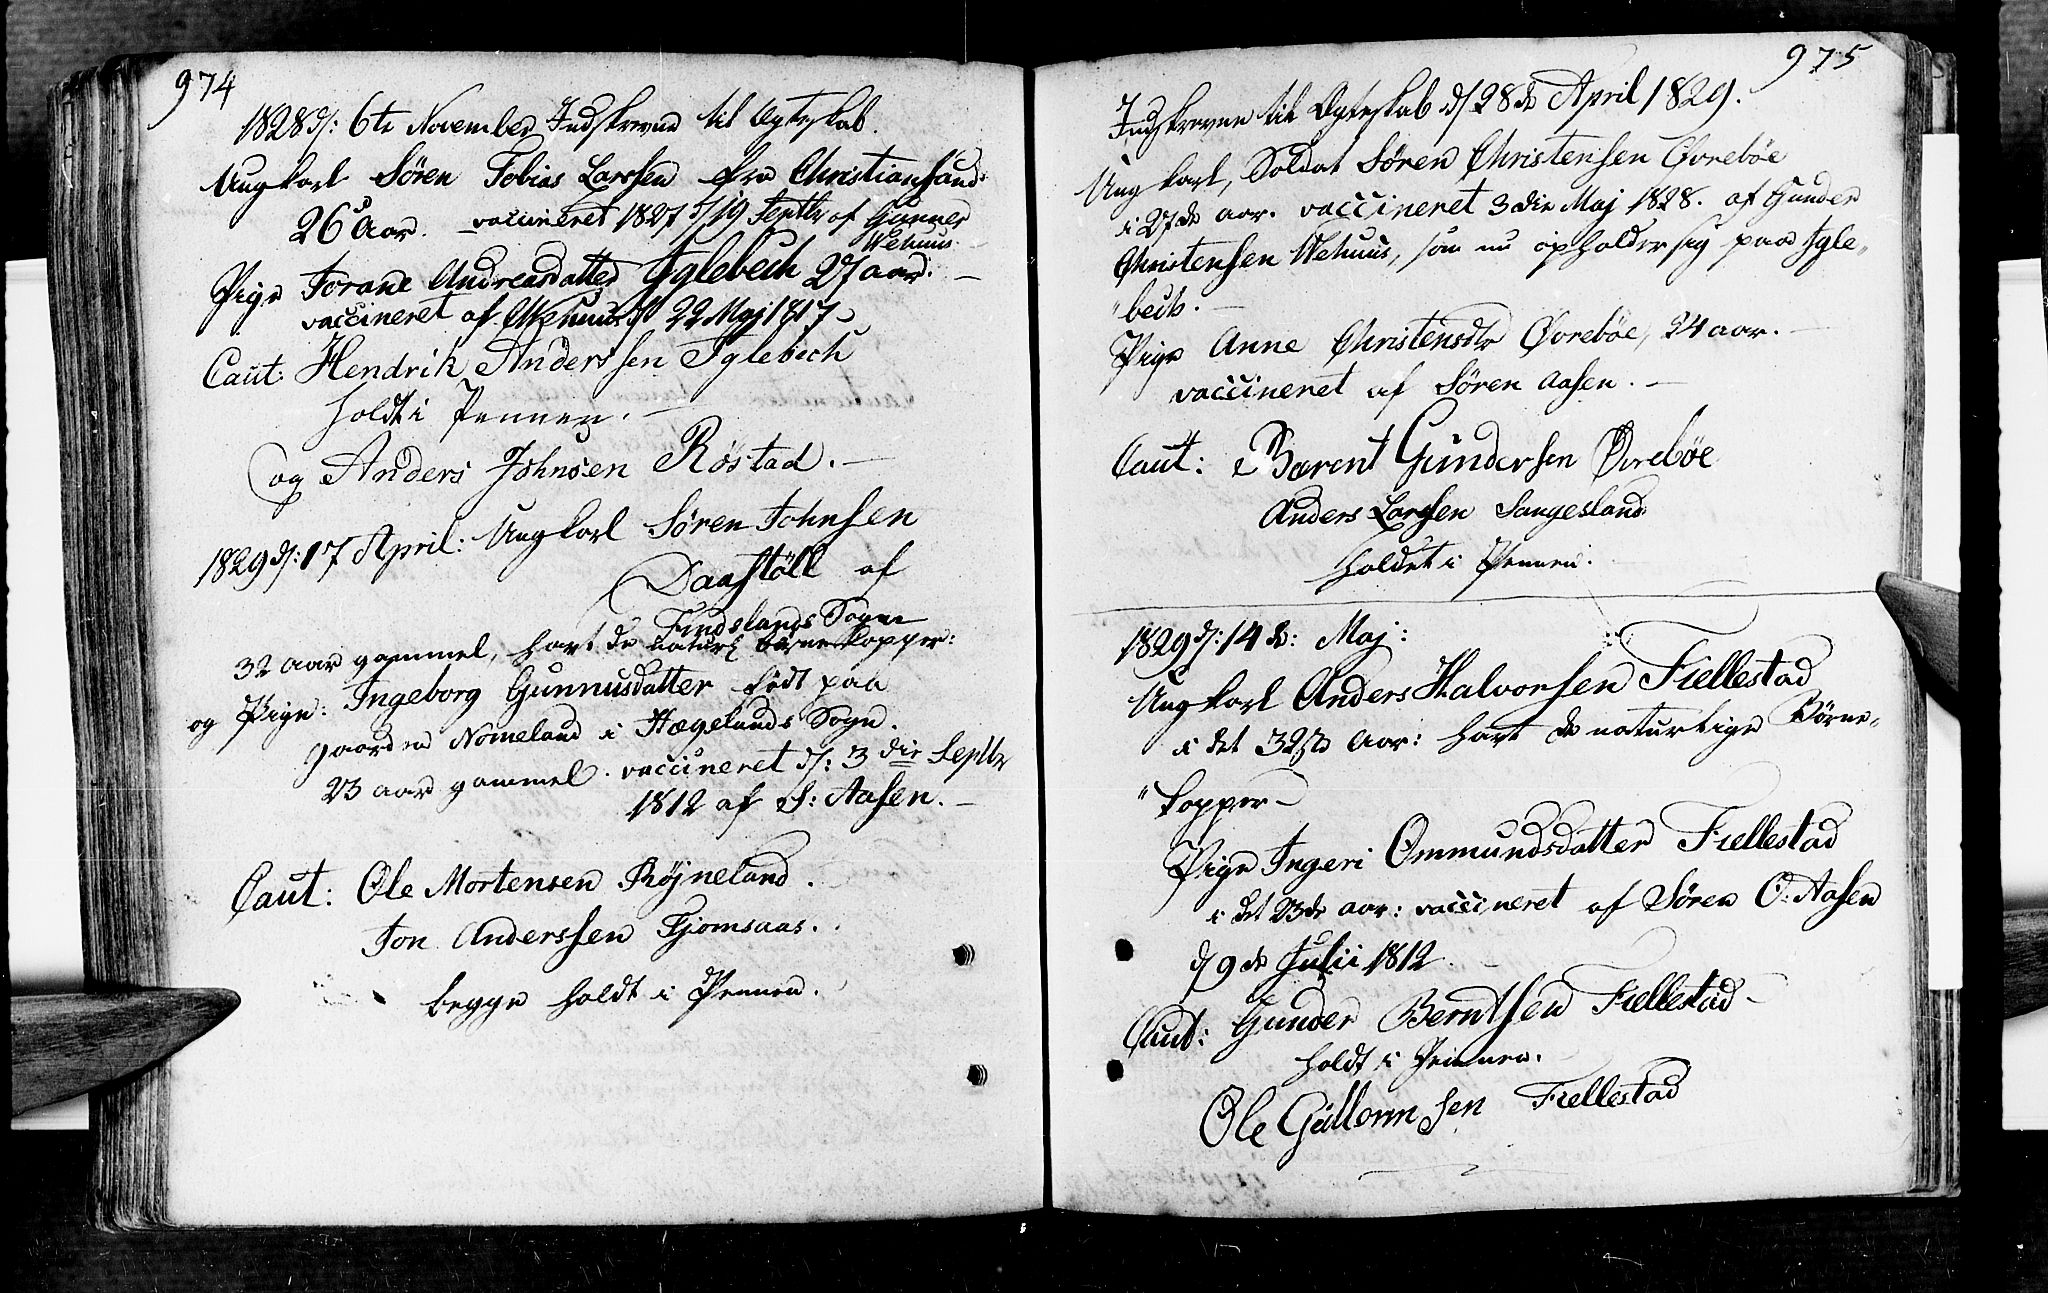 974
1828 d: 6te November Indskrevne til Egteskab.
Ungkarl Sören Tobias Larssen fra Christiansand
26 Aar. vaccineret 1827 d/19 Septbr af Gunner
Wehuus.
Pige Torane Andreasdatter Iglebech 27 aar.
vaccineret af Wehuus d 22 Maj 1817
Caut: Hendrik Anderssen Iglebech
holdt i Pennen.
og Anders Johnsen Röstad.
1829 d: 17 April: Ungkarl Søren Johnsen
Daastöll af
Findslands Sogn
32 aar gammel, havt de naturl børnekopper:
og Pige: Ingeborg Gunnusdatter født paa
gaarden Nomeland i Hægelands Sogn.
23 aar gammel. vaccineret d: 3die Septbr
1812 af S: Aasen.
Caut: Ole Mortensen Röjneland.
Jon Anderssen Tjomsaas.
begge holdt i Pennen.
975
Indskrevne til Egteskab d/28de April 1829.
Ungkarl, Soldat Søren Christensen Øvrebøe
i 27de aar. vaccineret 3die Maj 1828. af Gunder
Christensen Wehuus, som nu opholder sig paa Igle„
„bech.
Pige Anne Christensdtr Øvrebøe, 24 aar.
vaccineret af Søren Aasen.
Caut: Berent Gundersen Øvrebøe
Anders Larssen Sangesland
holdet i Pennen.
1829 d: 14de: Maj:
Ungkarl Anders Halvorsen Fiellestad
i det 32te Aar: havt de naturlige Börne„
„kopper
Pige Ingeri Ommundsdatter Fiellestad
i det 23de aar: vaccineret af Søren O. Aasen
d/9de Julii 1812.
Caut: Gunder Berntsen Fiellestad
holdt i Pennen.
Ole Gullormsen Fiellestad